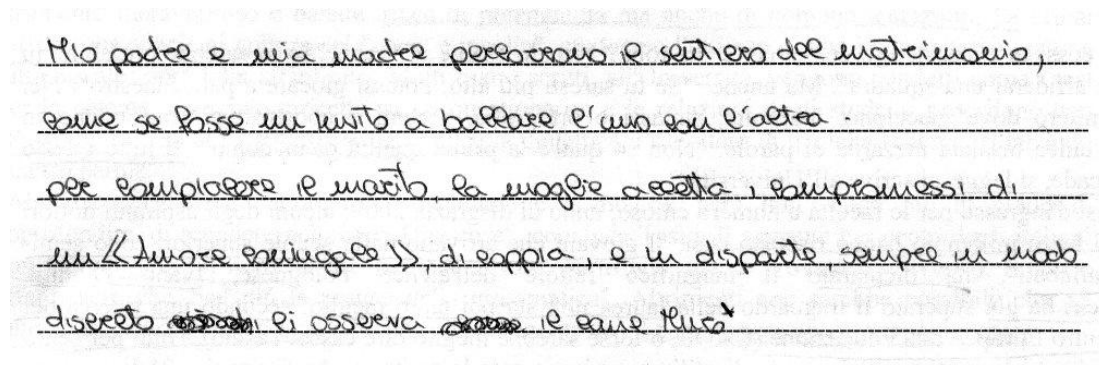 Mio padre e mia madre percorrono il sentiero del matrimonio,
come se fosse un invito a ballare l'uno con l'altra
per compiacere il marito, la moglie accetta i compromessi di
un << Amore coniugale >>, di coppia, e in disparte, sempre in modo
discreto li osserva il cane Muso